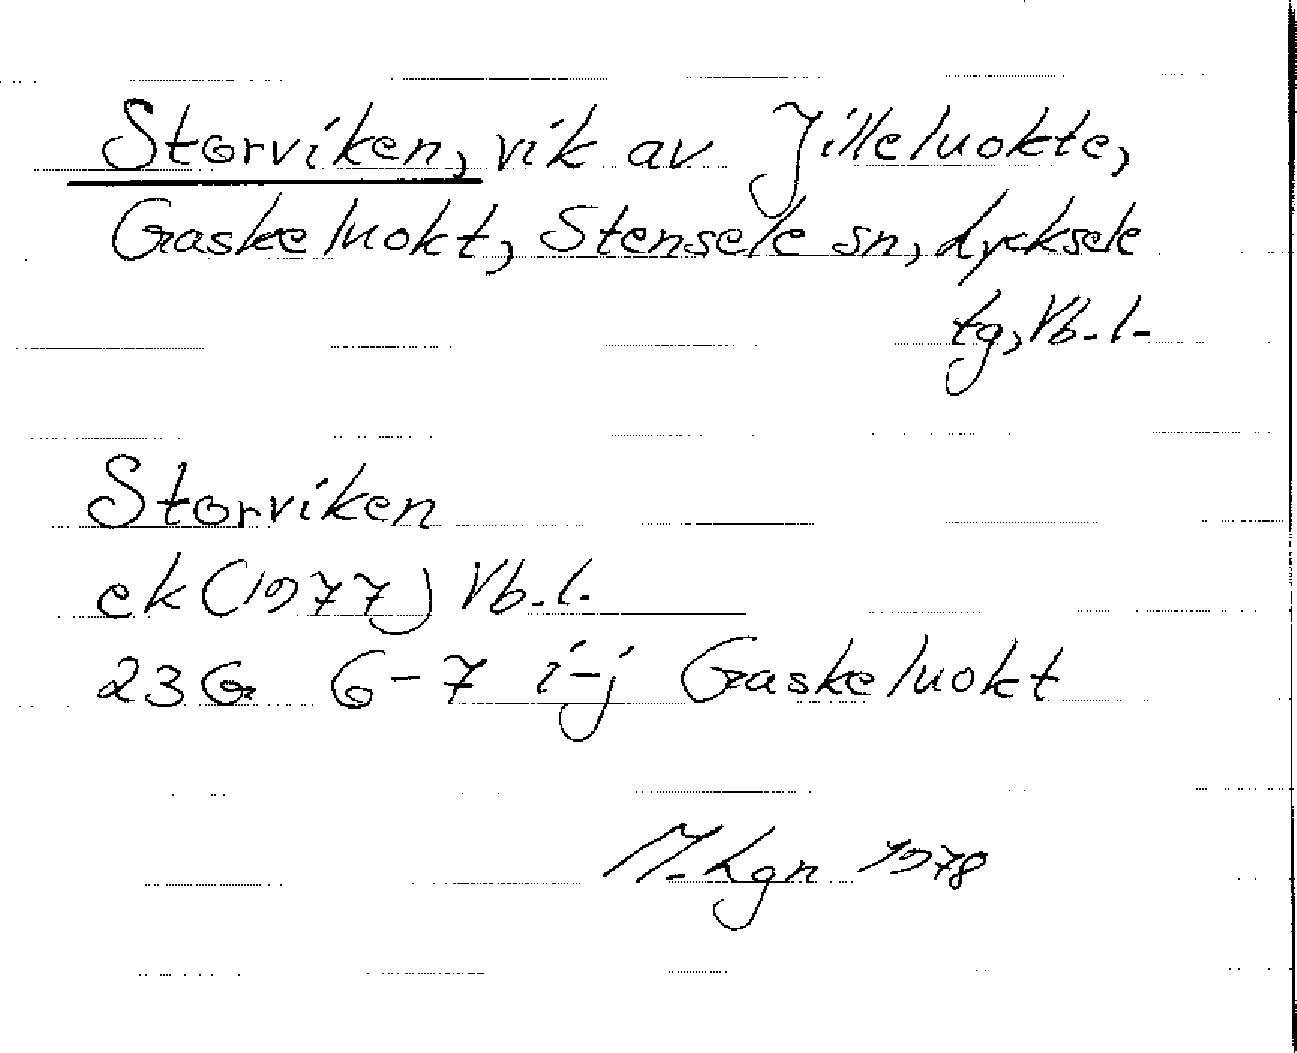 Storviken, vik av Jilleluokte,
Gaskeluokt, Stensele sn, Lycksele
tg, Vb. l.
Storviken
ek (1977) Vb. l.
23 G 6-7 i-j Gaskeluokt
M. Lgn 1978